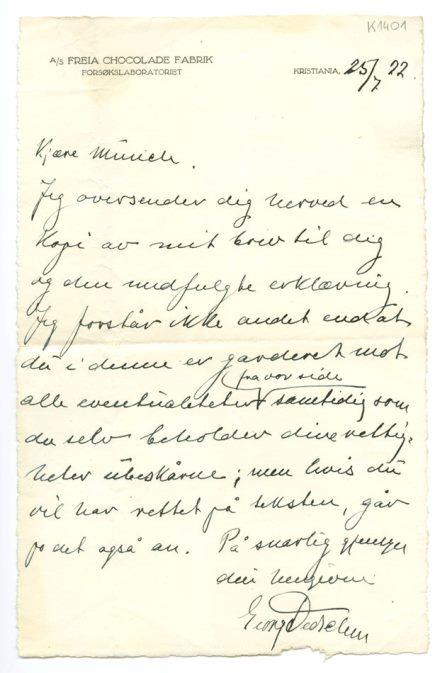 K1401
A/S FREIA CHOCOLADE FABRIK
FORSØKSLABORATORIET
KRISTIANIA, 25/7 22.
Kjære Munch.
Jeg oversender dig herved en
kopi av mit brev til dig
og den medfulgte erklæring.
Jeg forstår ikke andet end at
du i denne er garderet mot
fra vor side
alle eventualiteter samtidig som
du selv beholder dine rettig-
heter ubeskårne; men hvis du
vil har rettet på teksten, går
jo det også an. På snarlig gjensyn
din hengivne